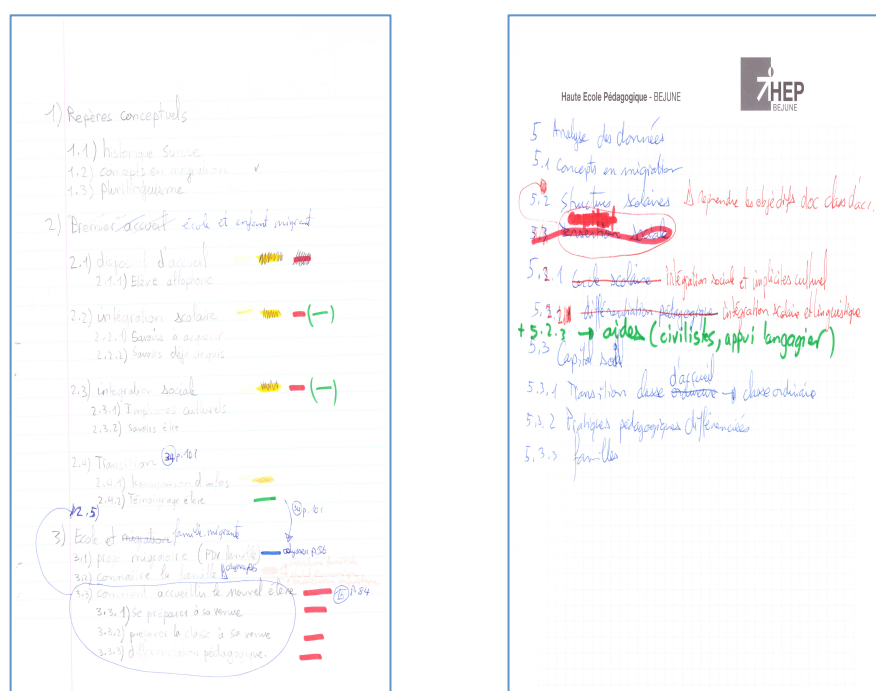 1) Repères conceptuels
1.1) historique Suisse
1.2) concepts en migration
1.3) plurilinguisme
2) Premier accueil école et enfant migrant
2.1) dispositif d'accueil
2.1.1) Elève allophone
2.2) intégration scolaire (—)
2.2.1) Savoirs à acquérir
2.2.2) Savoirs déjà acquis
2.3) intégration sociale (—)
2.3.1) Implicites culturels
2.3.2) Savoirs être
2.4) Transition p.101
2.4.1) d'infos
2.4.2) Témoignage élève
p.101
2.5)
3) Ecole et migration famille migrante
3.1) migratoire (PDV famille) p.56
3.2) connaître la famille
3.3) comment accueillir le nouvel élève 15 p.84
3.3.1) Se préparer à sa venue
3.3.2) préparer la classe à sa venue
3.3.3) différenciation pédagogique
Haute Ecole Pédagogique - BEJUNE
HEP
BEJUNE
5 Analyse des données
5.1 Concepts en migration
5.2 Structures scolaires ⚠ reprendre les objectifs doc class d'acc.
3.3 sociale
5.2.1 scolaire intégration sociale et implicites culturel
5.2.2 différenciation pédagogique intégration scolaire et linguistique
+ 5.2.3 → aides (civilistes, appui langagier)
5.3 Capital social
5.3.1 Transition classe ordinaire d'accueil → classe ordinaire
5.3.2 Pratiques pédagogiques différenciées
5.3.3 familles